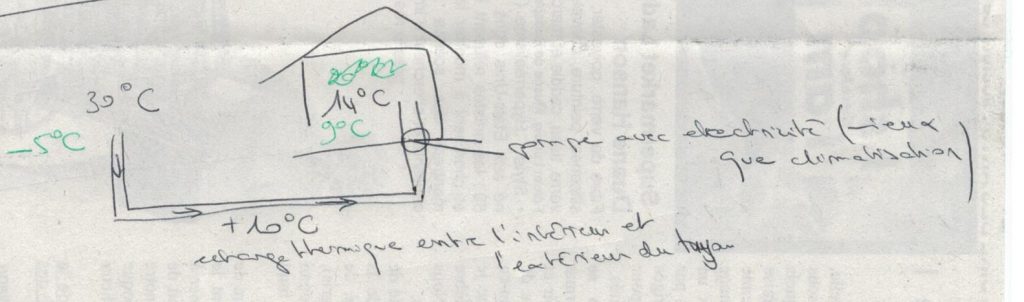 30°C
-5°C
14°C
9°C
pompe avec electricité (mieux
que climatisation)
+10°C
echange thermique entre l'intérieur et
l'extérieur du tuyau